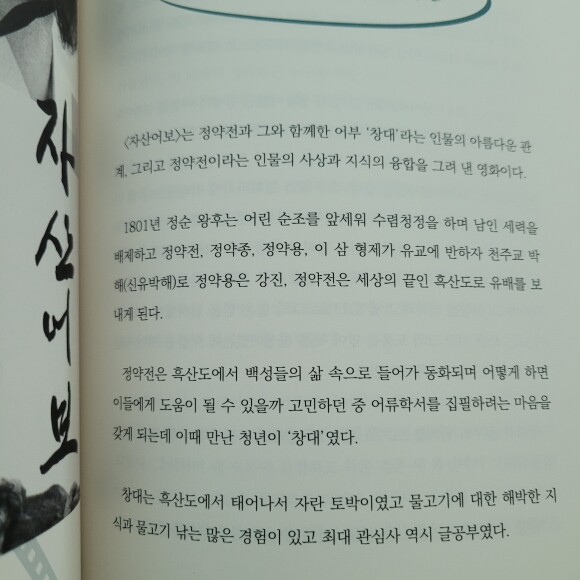 자산어보
〈자산어보〉는 정약전과 그와 함께한 어부 ‘창대’라는 인물의 아름다운 관
계, 그리고 정약전이라는 인물의 사상과 지식의 융합을 그려 낸 영화이다.
1801년 정순 왕후는 어린 순조를 앞세워 수렴청정을 하며 남인 세력을
배제하고 정약전, 정약종, 정약용, 이 삼 형제가 유교에 반하자 천주교 박
해(신유박해)로 정약용은 강진, 정약전은 세상의 끝인 흑산도로 유배를 보
내게 된다.
정약전은 흑산도에서 백성들의 삶 속으로 들어가 동화되며 어떻게 하면
이들에게 도움이 될 수 있을까 고민하던 중 어류학서를 집필하려는 마음을
갖게 되는데 이때 만난 청년이 ‘창대’였다.
창대는 흑산도에서 태어나서 자란 토박이였고 물고기에 대한 해박한 지
식과 물고기 낚는 많은 경험이 있고 최대 관심사 역시 글공부였다.